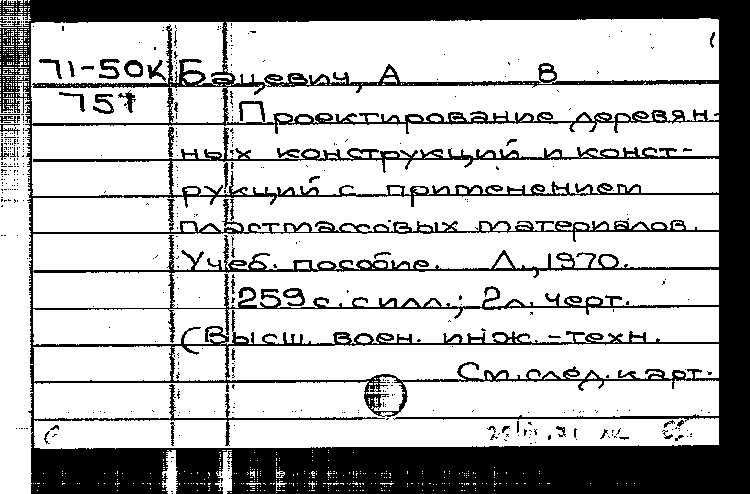 71-50К Бацевич, А В
757 Проектирование деревян-
ных конструкций и конст-
рукций с применением
пластмассовых материалов.
Учеб. пособие. Л., 1970.
259 с. с илл.; 2 л. черт.
(Высш. воен. инж.-техн.
См. след. карт.